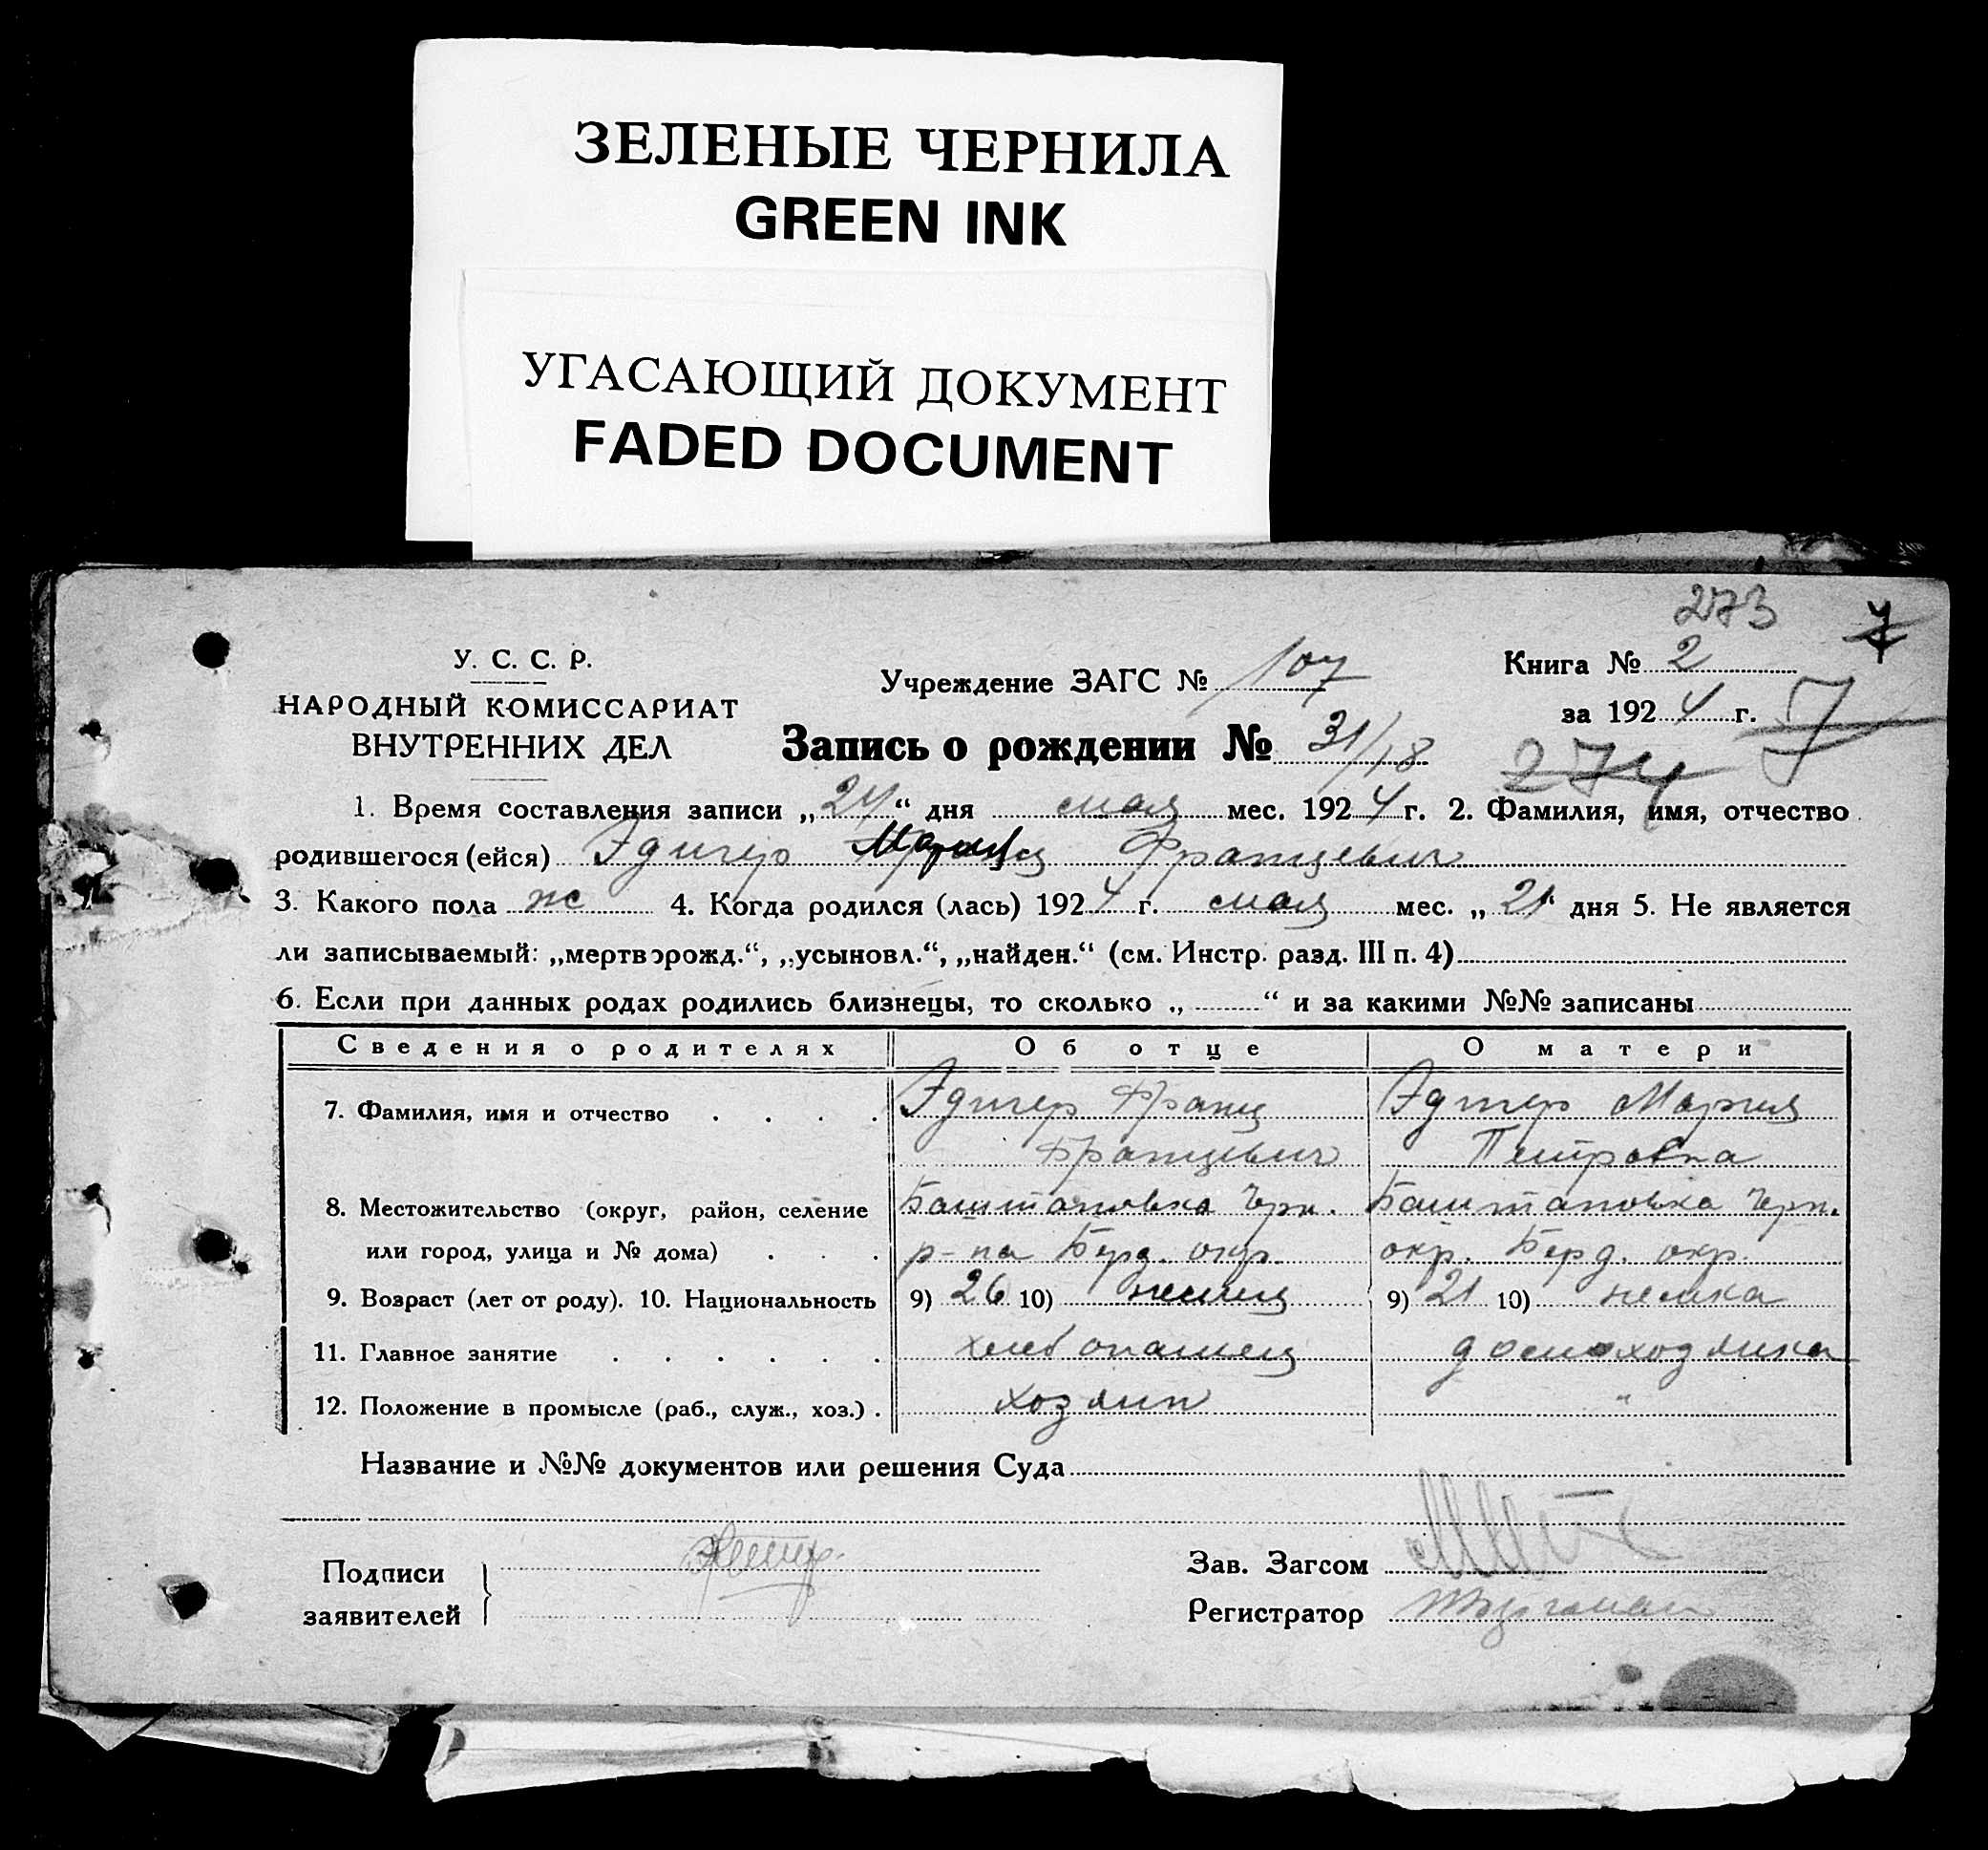 ЗЕЛЕНЫЕ ЧЕРНИЛА
GREEN INK
УГАСАЮЩИЙ ДОКУМЕНТ
FADED DOCUMENT
273
У. С. С. Р.
НАРОДНЫЙ КОМИССАРИАТ
ВНУТРЕННИХ ДЕЛ
Учреждение ЗАГС № 107
Книга № 2
за 1924 г.
Запись о рождении № 31/18
274 7
1. Время составления записи „24“ дня мая мес. 1924 г. 2. Фамилия, имя, отчество
родившегося (ейся) Эдигер Францевич
3. Какого пола ж 4. Когда родился (лась) 1924 г. мая мес. „21“ дня 5. Не является
ли записываемый: „мертворожд.“, „усыновл.“, „найден.“ (см. Инстр. разд. III п. 4)
6. Если при данных родах родились близнецы, то сколько „ “ и за какими №№ записаны
Сведения о родителях Об отце О матери
7. Фамилия, имя и отчество . . . . Эдигер Франц Эдигер Мария
Францевич Петровна
8. Местожительство (округ, район, селение Баштановка Черн. Баштановка Черн.
или город, улица и № дома) . . . р-на Берд. окр. окр. Берд. окр.
9. Возраст (лет от роду). 10. Национальность 9) 26 10) немец 9) 21 10) немка
11. Главное занятие . . . . . . хлебопашец домохозяйка
12. Положение в промысле (раб., служ., хоз.) . хозяин "
Название и №№ документов или решения Суда
Подписи
заявителей
Зав. Загсом
Регистратор